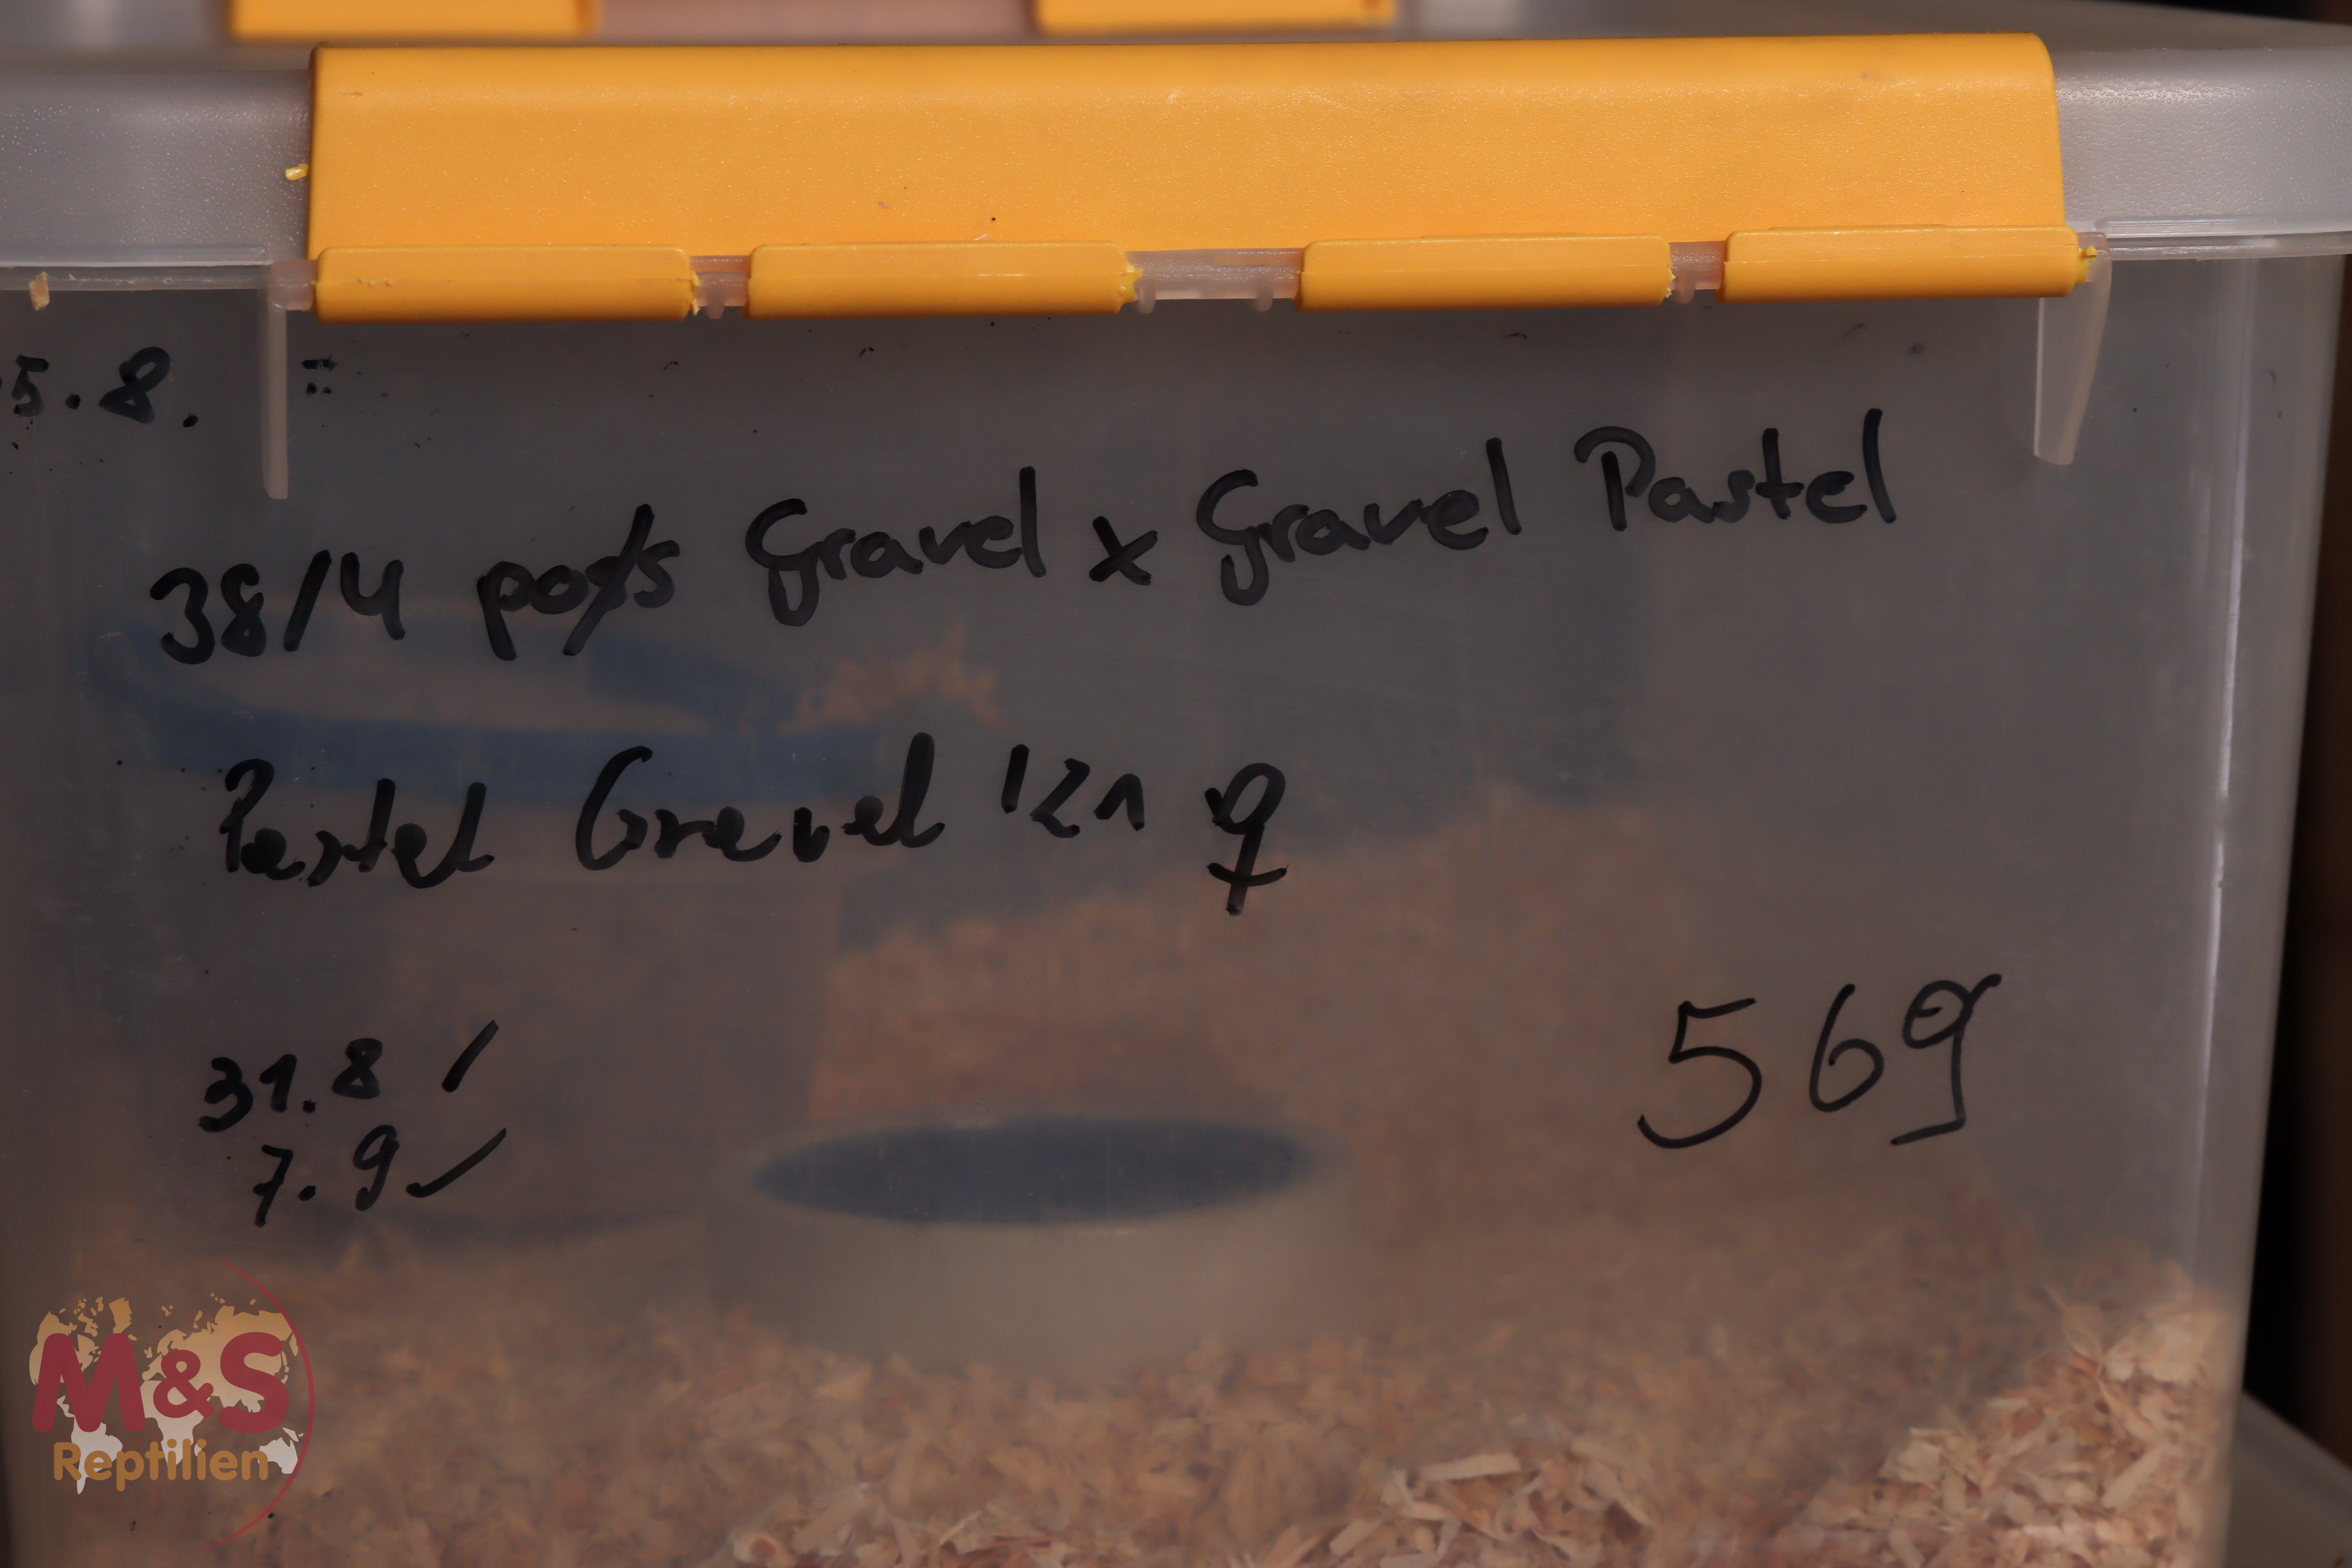 5.8.
38/4 poss Gravel x Gravel Pastel
Pastel Gravel ♀
31.8 /
7.9 ✓
569
M&S
Reptilien